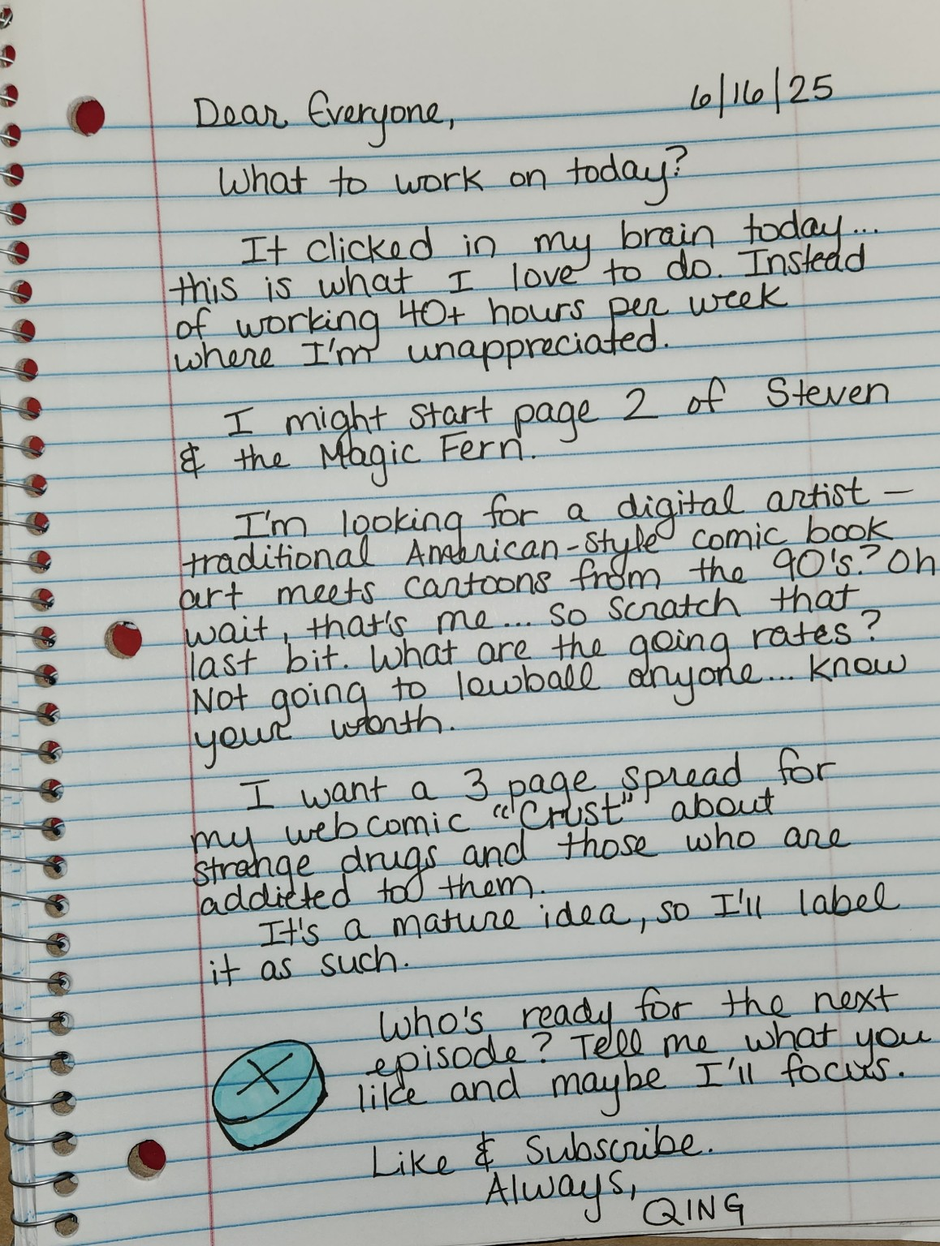 Dear Everyone, 6/16/25
What to work on today?
It clicked in my brain today...
this is what I love to do. Instead
of working 40+ hours per week
where I'm unappreciated.
I might start page 2 of Steven
& the Magic Fern.
I'm looking for a digital artist –
traditional American-style comic book
art meets cartoons from the 90's? Oh
wait, that's me... so scratch that
last bit. What are the going rates?
Not going to lowball anyone... know
your worth.
I want a 3 page spread for
my webcomic "Crust" about
strange drugs and those who are
addicted to them.
It's a mature idea, so I'll label
it as such.
Who's ready for the next
episode? Tell me what you
like and maybe I'll focus.
Like & Subscribe.
Always,
QING
X